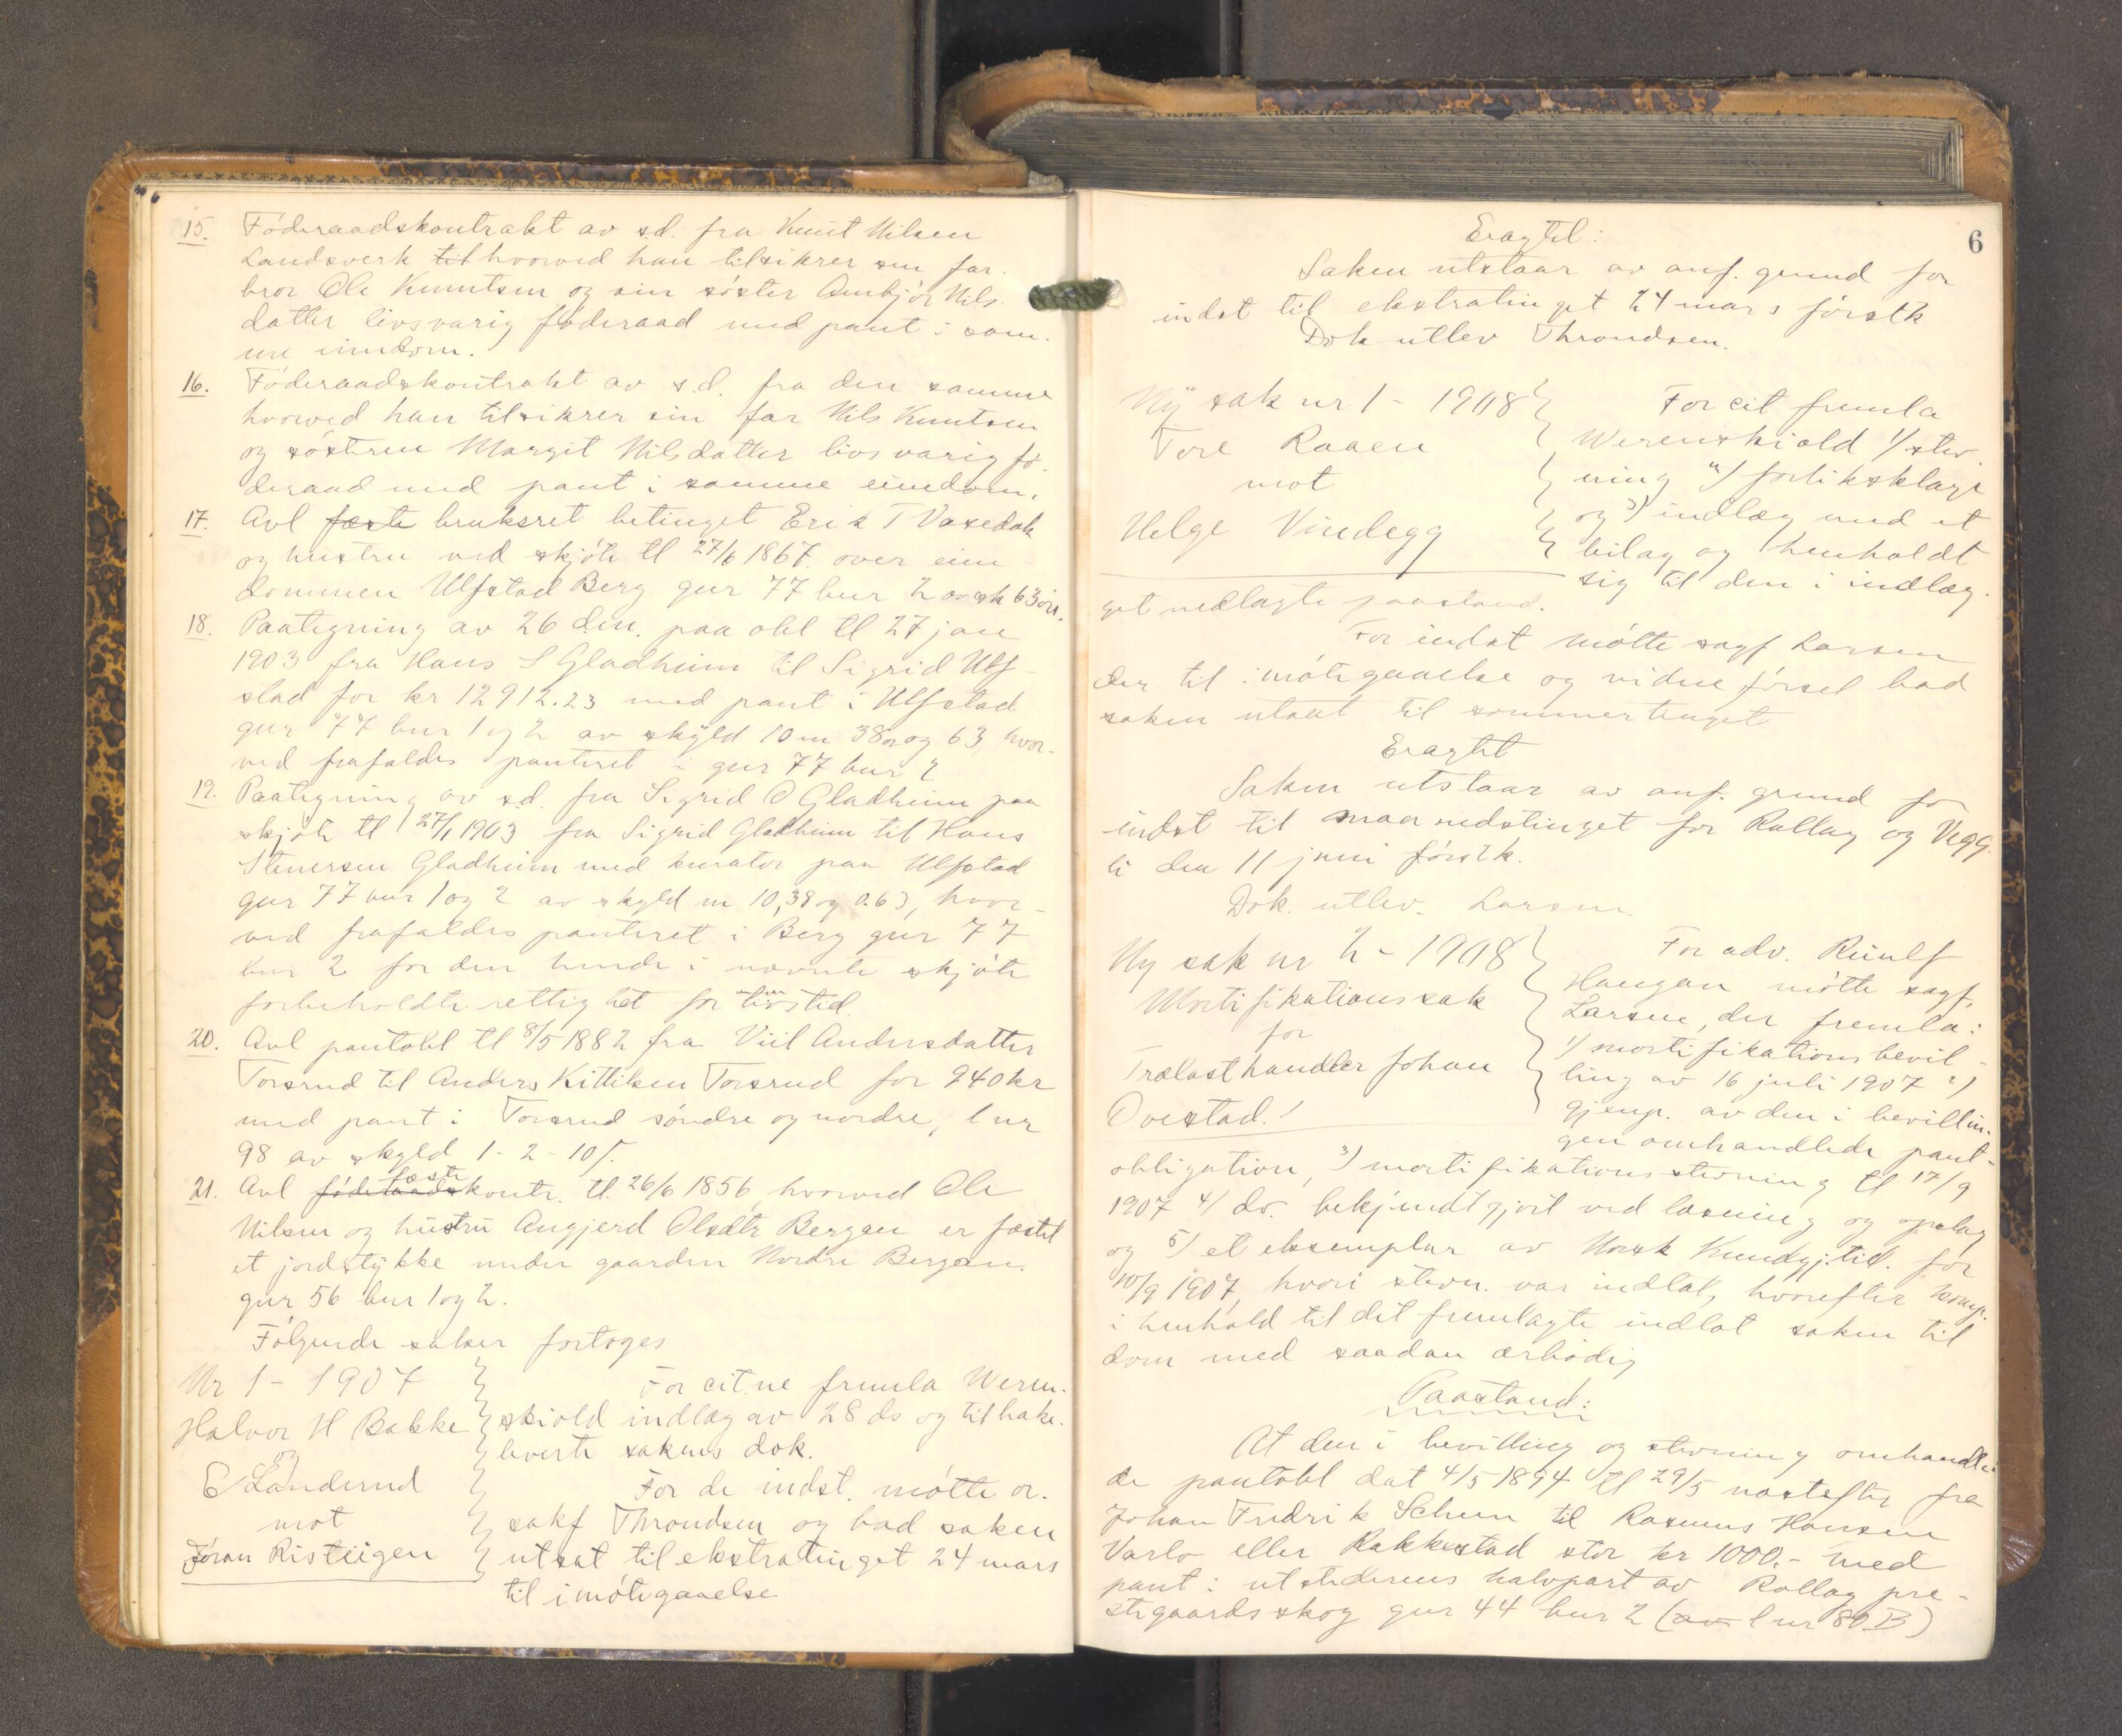 15. Föderaadskontrakt av s.d. fra Knut Nilsen
Landsverk til hvorved han tilsikrer sin far-
bror Ole Knutsen og sin söster Ambjör Nils-
datter livsvarig föderaad med pant i sam-
me eiendom.
16. Föderaadskontrakt av s.d. fra den samme
hvorved han tilsikrer sin far Nils Knutsen
og söstren Margit Nilsdatter livsvarig fö-
deraad med pant i samme eiendom.
17. Avl fæste bruksret betinget Erik T Vasedak
og hustru ved skjöte tl 27/6 1867 over eien-
dommen Ulfstad Berg gnr 77 bnr 2 av sk 63 öre.
18. Paategning av 26 dm. paa obl tl 27 jan
1903 fra Hans S Gladheim til Sigrid Ulf-
stad for kr 12912.23 med pant i Ulfstad
gnr 77 bnr 1 og 2 av skyld 10 m 38 ö og 63 hvor-
ved frafaldes panteret i gnr 77 bnr 2
19. Paategning av s.d. fra Sigrid O Gladheim paa
skjöte tl 27/1 1903 fra Sigrid Gladheim til Hans
Stenersen Gladheim med kurator paa Ulfstad
gnr 77 bnr 1 og 2 av skyld m 10,38 og 0.63, hvor-
ved frafaldes panteret i Berg gnr 77
bnr 2 for den hende i nævnte skjöte
forbeholdte rettighet for livstid.
20. Avl pantobl tl 8/5 1882 fra Viil Andersdatter
Torsrud til Anders Kittilsen Torsrud for 940 kr
med pant i Torsrud söndre og nordre, l nr
98 av skyld 1-2-10/.
21. Avl föderaads fæstekontr. tl. 26/6 1856 hvorved Ole
Nilsen og hustru Angjerd Olsdtr Bergan er fæstet
et jordstykke under gaarden Nordre Bergan.
gnr 56 bnr 1 og 2.
Følgende saker foretoges
Nr 1 - 1907
Halvor H Bakke
og
E Landerud
mot
Jöran Risteigen
For cit.ne fremla Weren-
skiold indlæg av 28 ds og tilbake-
leverte sakens dok.
For de indst. mötte or.
sakf Throndsen og bad saken
utsat til ekstratinget 24 mars
til imötegaaelse
6
Eragtet:
Saken utstaar av anf. grund for
indst til ekstratinget 24 mars förstk
Dok utlev Throndsen.
Ny sak nr 1 - 1908
Tore Raaen
mot
Helge Vindegg
For cit fremla
Werenskiold 1/ stev-
ning 2) forliksklage
og 3) indlæg med et
bilag og henholdt
sig til den i indlæg-
get nedlagte paastand.
For indst mötte sagf Larsen
der til imötegaaelse og vidneförsel bad
saken utsat til sommertinget
Eragtet
Saken utstaar av anf. grund for
indst til maanedstinget for Rollag og Vegg-
li den 11 juni förstk.
Dok. utlev. Larsen.
Ny sak nr 2 - 1908
Mortifikationssak
for
Trælasthandler Johan
Ovestad.
For adv. Runlf
Haugan mötte sagf.
Larsen, der fremla:
1) mortifikationsbevil-
ling av 16 juli 1907 2)
gjenp. av den i bevillin-
gen omhandlede pant-
obligation, 3) mortifikationsstevning tl 17/9
1907 4/ do. bekjendtgjort ved læsning og opslag
og 5) et eksemplar av Norsk Kundgj. tid. for
10/9 1907, hvori stevn. var indtat, hvorefter komp.
i henhold til det fremlagte indlot saken til
dom med saadan ærbödig
Paastand:
At den i bevilling og stevning omhandle-
de pantobl dat 4/5 1894 tl 29/5 næstefter fra
Johan Fredrik Schun til Rasmus Hansen
Varlo eller Rakkestad stor kr 1000.- med
pant i utstederens halvpart av Rollag pre-
stegaards skog gnr 44 bnr 2 (av l nr 80 B)